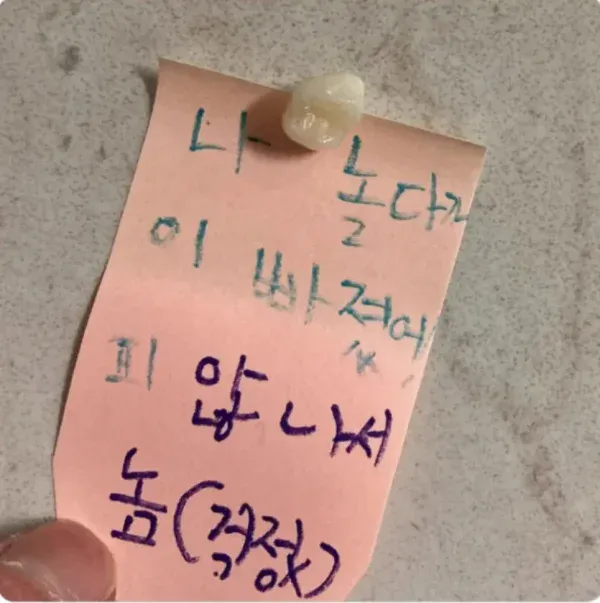 나 놀다가
이 빠졌어
피 않나서
놈(걱정X)